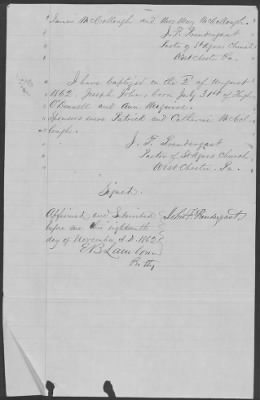 James McCollough and Mrs Mary McCollough.
J. F. Prendergast
Pastor of St Agnes Church
West Chester Pa.
I have baptized on the of August
1862, Joseph John, born July 31st of Hugh
O'Donnell and Ann Maguire.
Sponsors were Patrick and Catherine McCol-
lough.
J. F. Prendergast
Pastor of St Agnes Church,
West Chester, Pa.
Signed.
Affirmed and Subscribed
before me this eighteenth
day of November A.D. 1862
John F. Prendergast